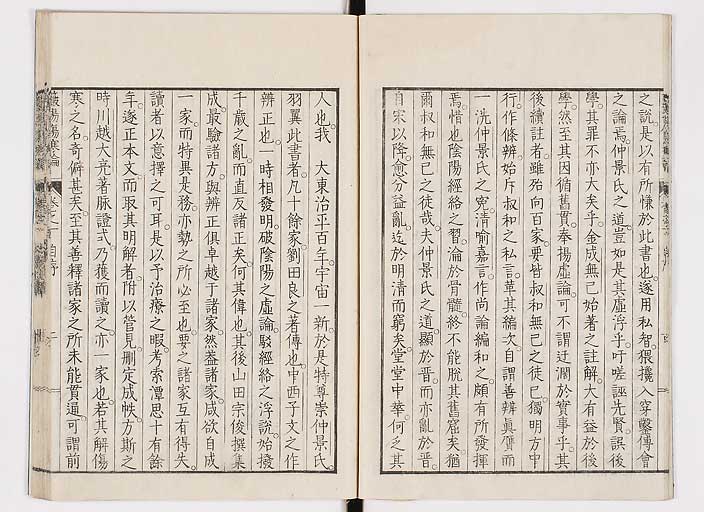 之說是以有所慊於此書也遂用私智猥攙入穿鑿傳會
之論焉仲景氏之道豈如是其虛浮乎吁嗟誣先賢誤後
學其罪不亦大矣乎金成無已始著之註解大有益於後
學然至其因循舊貫奉揚虛論可不謂迂濶於實事乎其
後續註者雖殆向百家要皆叔和無已之徒已獨明方中
行作條辨始斥叔和之私言革其編次自謂善辨眞贋而
一洗仲景氏之寃清喻嘉言作尚論編和之頗有所發揮
焉惜也陰陽經絡之習淪於骨髓終不能脫其舊窟矣猶
爾叔和無已之徒哉夫仲景氏之道顯於晋而亦亂於晋
自宋以降愈分益亂迄於明清而窮矣堂堂中華何之其
人也我 大東治平百年宇宙一新於是特尊崇仲景氏
羽翼此書者凡十餘家劉田良之著傳也中西子文之作
辨正也一時相發明破陰陽之虛論駁經絡之浮說始撥
千歲之亂而直反諸正矣何其偉也其後山田宗俊撰集
成最驗諸方與辨正俱卓越于諸家然盍諸家咸欲自成
一家而特異是務亦勢之所必至也要之諸家互有得失
讀者以意擇之可耳是以予治療之暇考索潭思十有餘
年遂正本文而取其明解者附以管見刪定成帙方斯之
時川越大亮著脉證式乃獲而讀之亦一家也若其解傷
寒之名奇僻甚矣至其善釋諸家之所未能貫逼可謂前
傷寒論 卷之一 自序 二